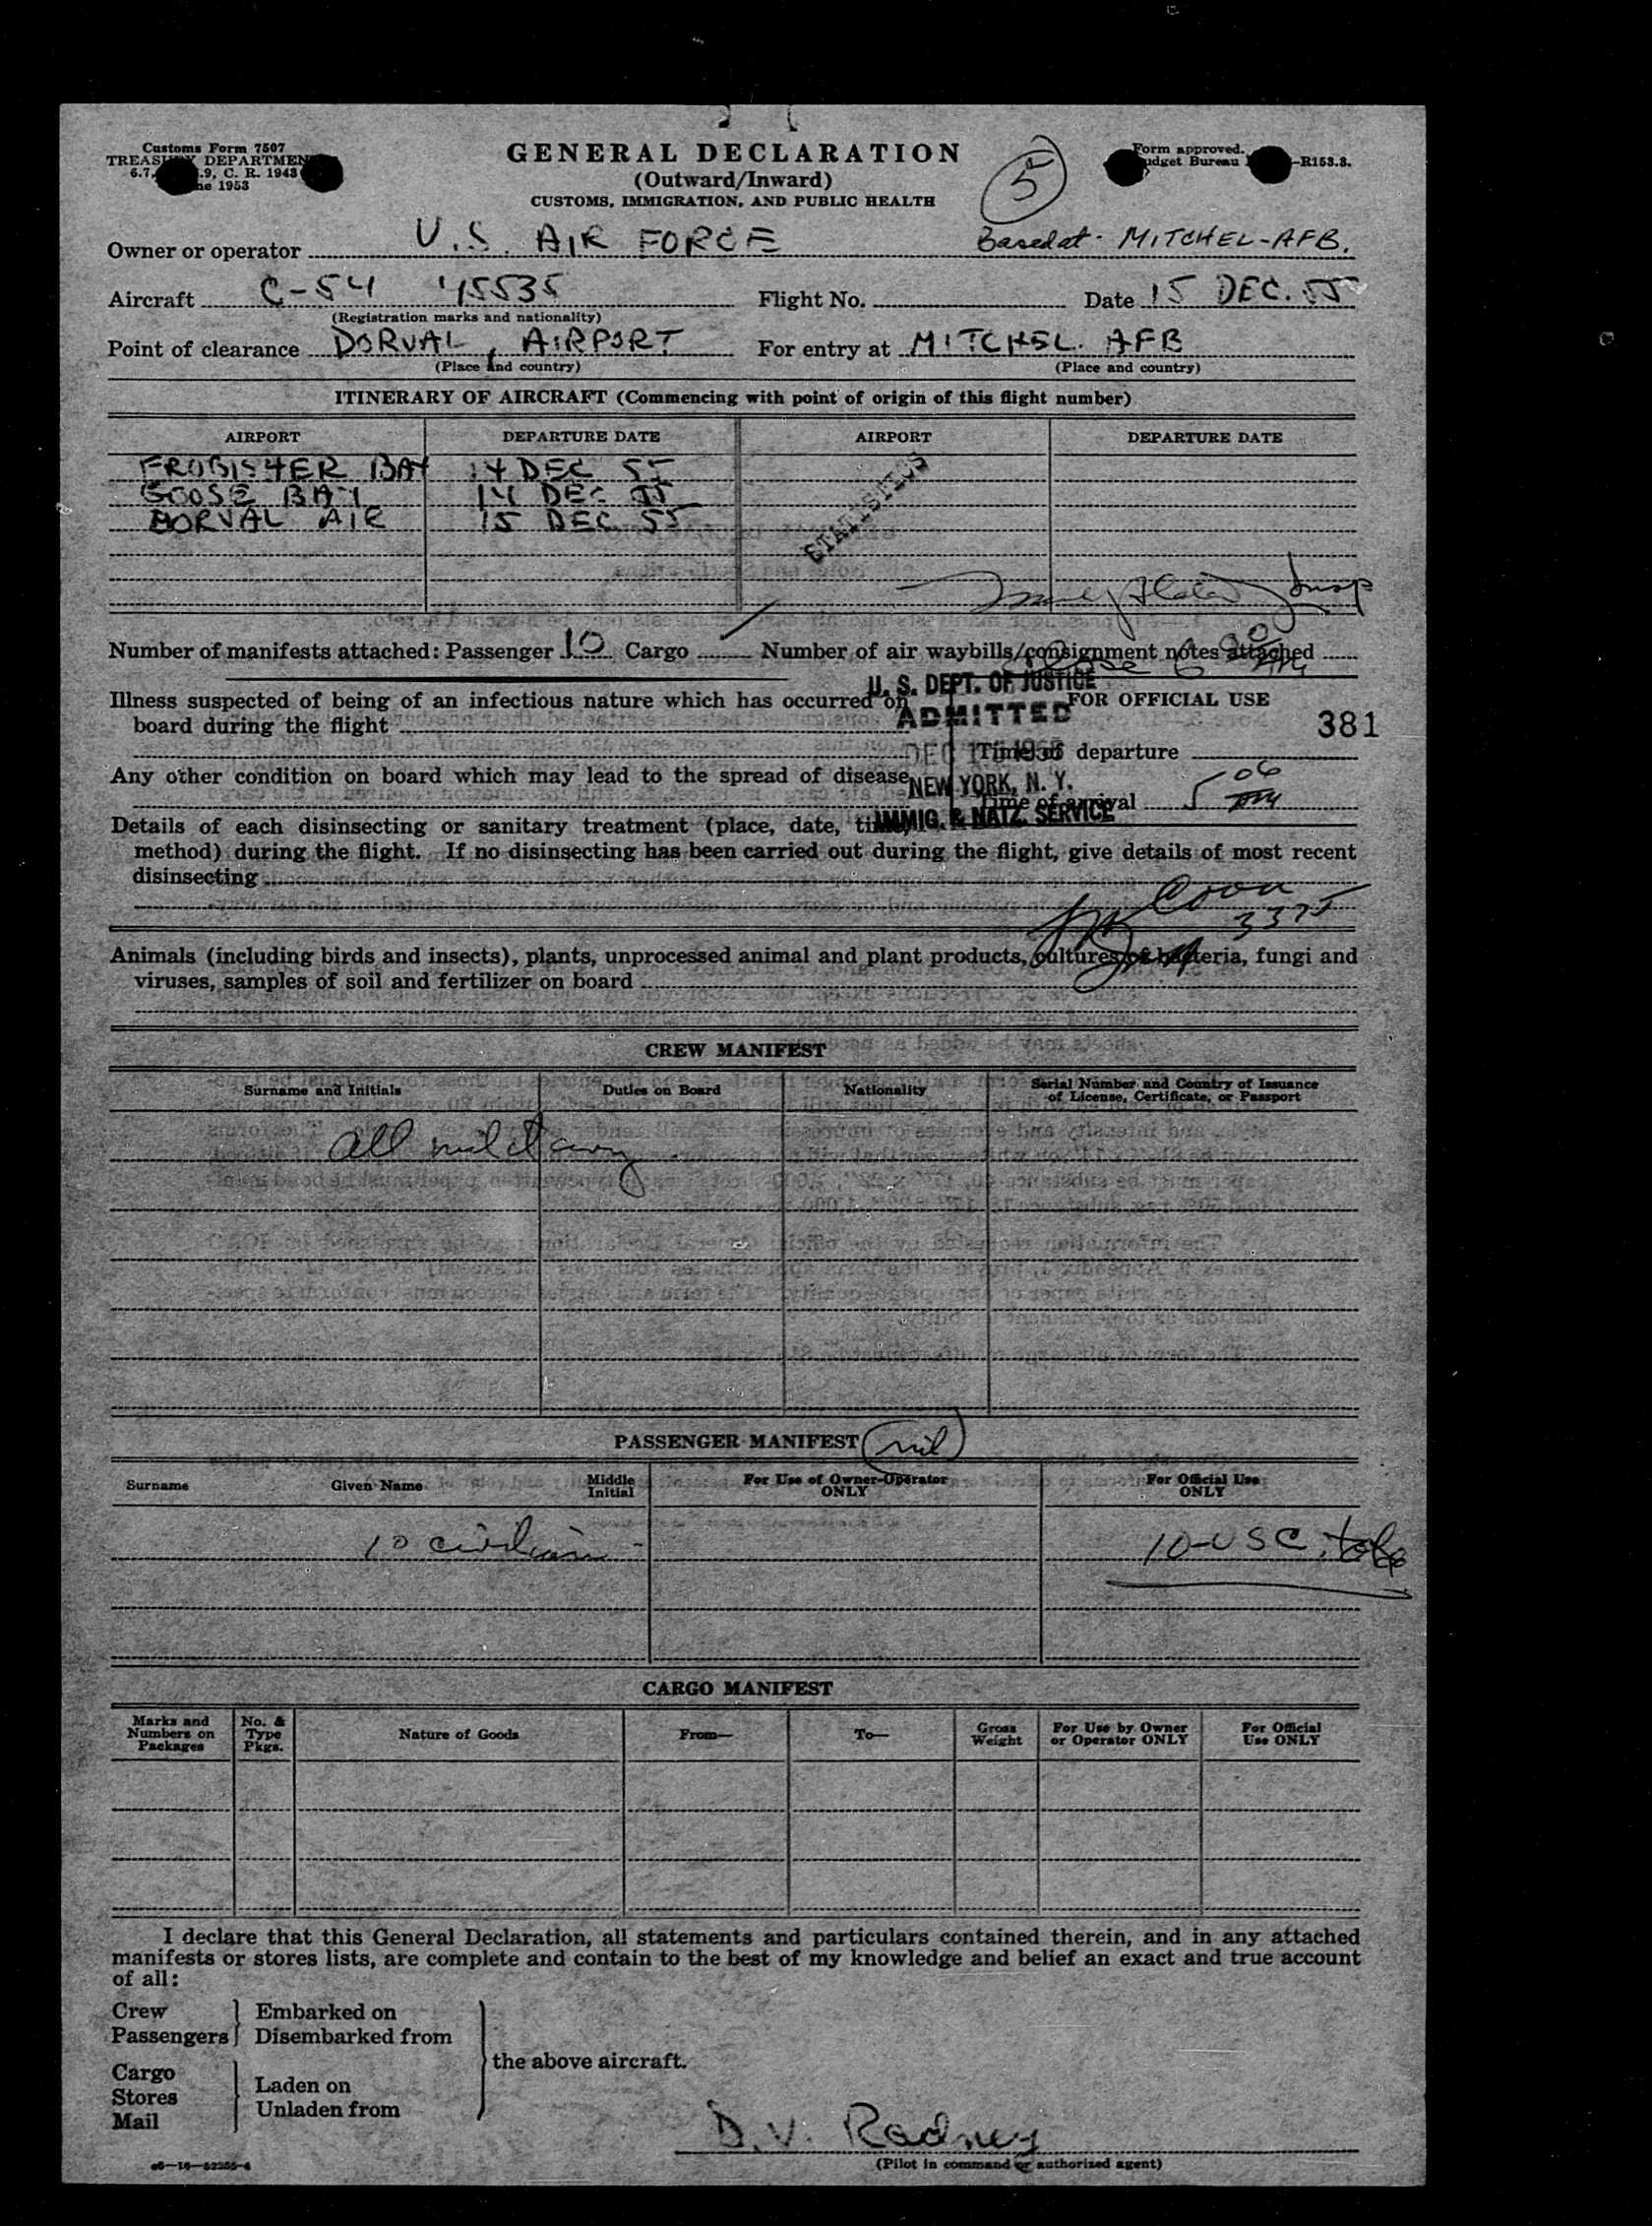 Customs Form 7507
TREASURY DEPARTMENT
6.7, .9, C. R. 1943
ne 1953
GENERAL DECLARATION
(Outward/Inward)
CUSTOMS, IMMIGRATION, AND PUBLIC HEALTH
5
Form approved.
udget Bureau -R153.3.
Owner or operator U.S. AIR FORCE Based at- MITCHEL-AFB.
Aircraft C-54 45535 Flight No. Date 15 DEC. 55
(Registration marks and nationality)
Point of clearance DORVAL, AIRPORT For entry at MITCHEL. AFB
(Place and country) (Place and country)
ITINERARY OF AIRCRAFT (Commencing with point of origin of this flight number)
AIRPORT DEPARTURE DATE AIRPORT DEPARTURE DATE
FROBISHER BAY 14 DEC 55
GOOSE BAY 14 DEC 55
DORVAL AIR 15 DEC 55
STATISTICS
Number of manifests attached: Passenger 10 Cargo Number of air waybills/consignment notes attached
U. S. DEPT. OF JUSTICE
Illness suspected of being of an infectious nature which has occurred on FOR OFFICIAL USE
ADMITTED
381
board during the flight
DEC Time of departure
Any other condition on board which may lead to the spread of disease
NEW YORK, N. Y.
Time of arrival 5 06
IMMIG. & NATZ. SERVICE
Details of each disinsecting or sanitary treatment (place, date, time,
method) during the flight. If no disinsecting has been carried out during the flight, give details of most recent
disinsecting
3375
Animals (including birds and insects), plants, unprocessed animal and plant products, cultures of bacteria, fungi and
viruses, samples of soil and fertilizer on board
CREW MANIFEST
Surname and Initials Duties on Board Nationality Serial Number and Country of Issuance
of License, Certificate, or Passport
all military
PASSENGER MANIFEST nil
Surname Given Name Middle Initial For Use of Owner-Operator ONLY For Official Use ONLY
10 civilians 10-USC
CARGO MANIFEST
Marks and Numbers on Packages No. & Type Pkgs. Nature of Goods From— To— Gross Weight For Use by Owner or Operator ONLY For Official Use ONLY
I declare that this General Declaration, all statements and particulars contained therein, and in any attached
manifests or stores lists, are complete and contain to the best of my knowledge and belief an exact and true account
of all:
Crew Embarked on
Passengers Disembarked from
the above aircraft.
Cargo
Stores Laden on
Mail Unladen from
D. V. Radney
(Pilot in command or authorized agent)